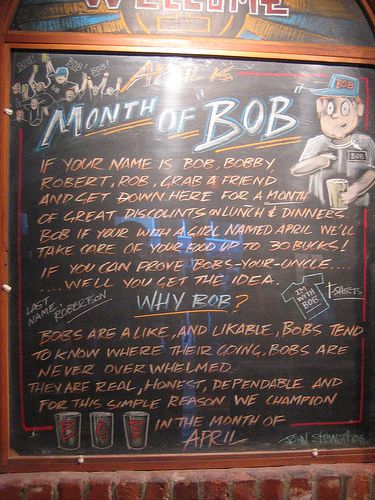 WELCOME
BOB! BOB! BOB!
APRIL IS
"MONTH OF "BOB"
BOB
BOB
IF YOUR NAME IS BOB, BOBBY,
ROBERT, ROB, GRAB A FRIEND
AND GET DOWN HERE FOR A MONTH
OF GREAT DISCOUNTS ON LUNCH & DINNERS.
BOB IF YOUR WITH A GIRL NAMED APRIL WE'LL
TAKE CARE OF YOUR FOOD UP TO 30 BUCKS!
IF YOU CAN PROVE BOBS-YOUR-UNCLE....
....WELL YOU GET THE IDEA.
LAST
NAME,
ROBERTSON
WHY BOB?
I'M
WITH
BOB
T-SHIRTS
BOBS ARE ALIKE, AND LIKABLE, BOBS TEND
TO KNOW WHERE THEIR GOING, BOBS ARE
NEVER OVER WHELMED.
THEY ARE REAL, HONEST, DEPENDABLE AND
FOR THIS SIMPLE REASON WE CHAMPION
BOB IN THE MONTH OF
APRIL
JOHN STEWART 06